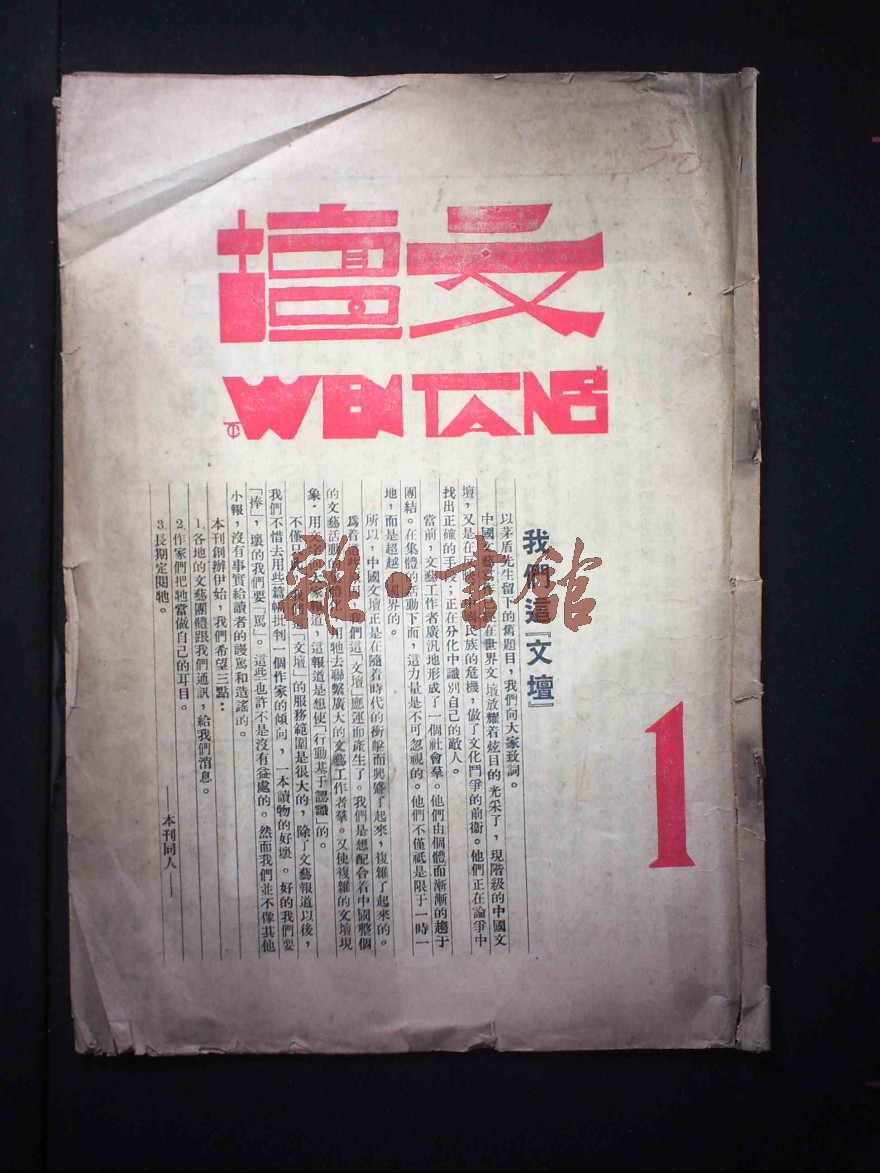 文壇
WEN TANG
1
我們這『文壇』
以茅盾先生留下的舊題目，我們向大家致詞。
中國文藝在世界文壇放耀着炫目的光采了，現階級的中國文
壇，又是在民族的危機，做了文化鬥爭的前衞。他們正在論爭中
找出正確的手段；正在分化中識別自己的敵人。
當前，文藝工作者廣汎地形成了一個社會羣。他們由個體而漸漸的趨于
團結。在集體的活動下面，這力量是不可忽視的。他們不僅祗是限于一時一
地，而是超越國界的。
所以，中國文壇正是在隨着時代的衝擊而興盛了起來，複雜了起來的。
爲着我們這「文壇」應運而產生了。我們是想配合着中國整個
的文藝活動用牠去聯繫廣大的文藝工作者羣。又使複雜的文壇現
象，用文字大家報道，這報道是想使「行動基于認識」的。
不僅「文壇」的服務範圍是很大的，除了文藝報道以後，
我們不惜去用些篇幅批判一個作家的傾向，一本讀物的好壞。好的我們要
「捧」，壞的我們要「罵」。這些也許不是沒有益處的。然而我們並不像其他
小報，沒有事實給讀者的謾罵和造謠的。
本刊創辦伊始，我們希望三點：
1.各地的文藝團體跟我們通訊，給我們消息。
2.作家們把牠當做自己的耳目。
3.長期定閱牠。
——本刊同人——
雜·書館